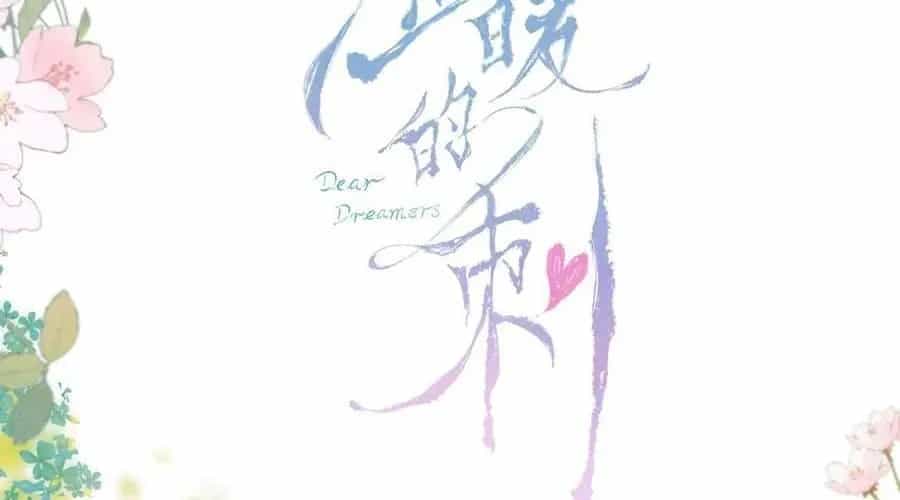 温暖
的
Dear
Dreamers
刺